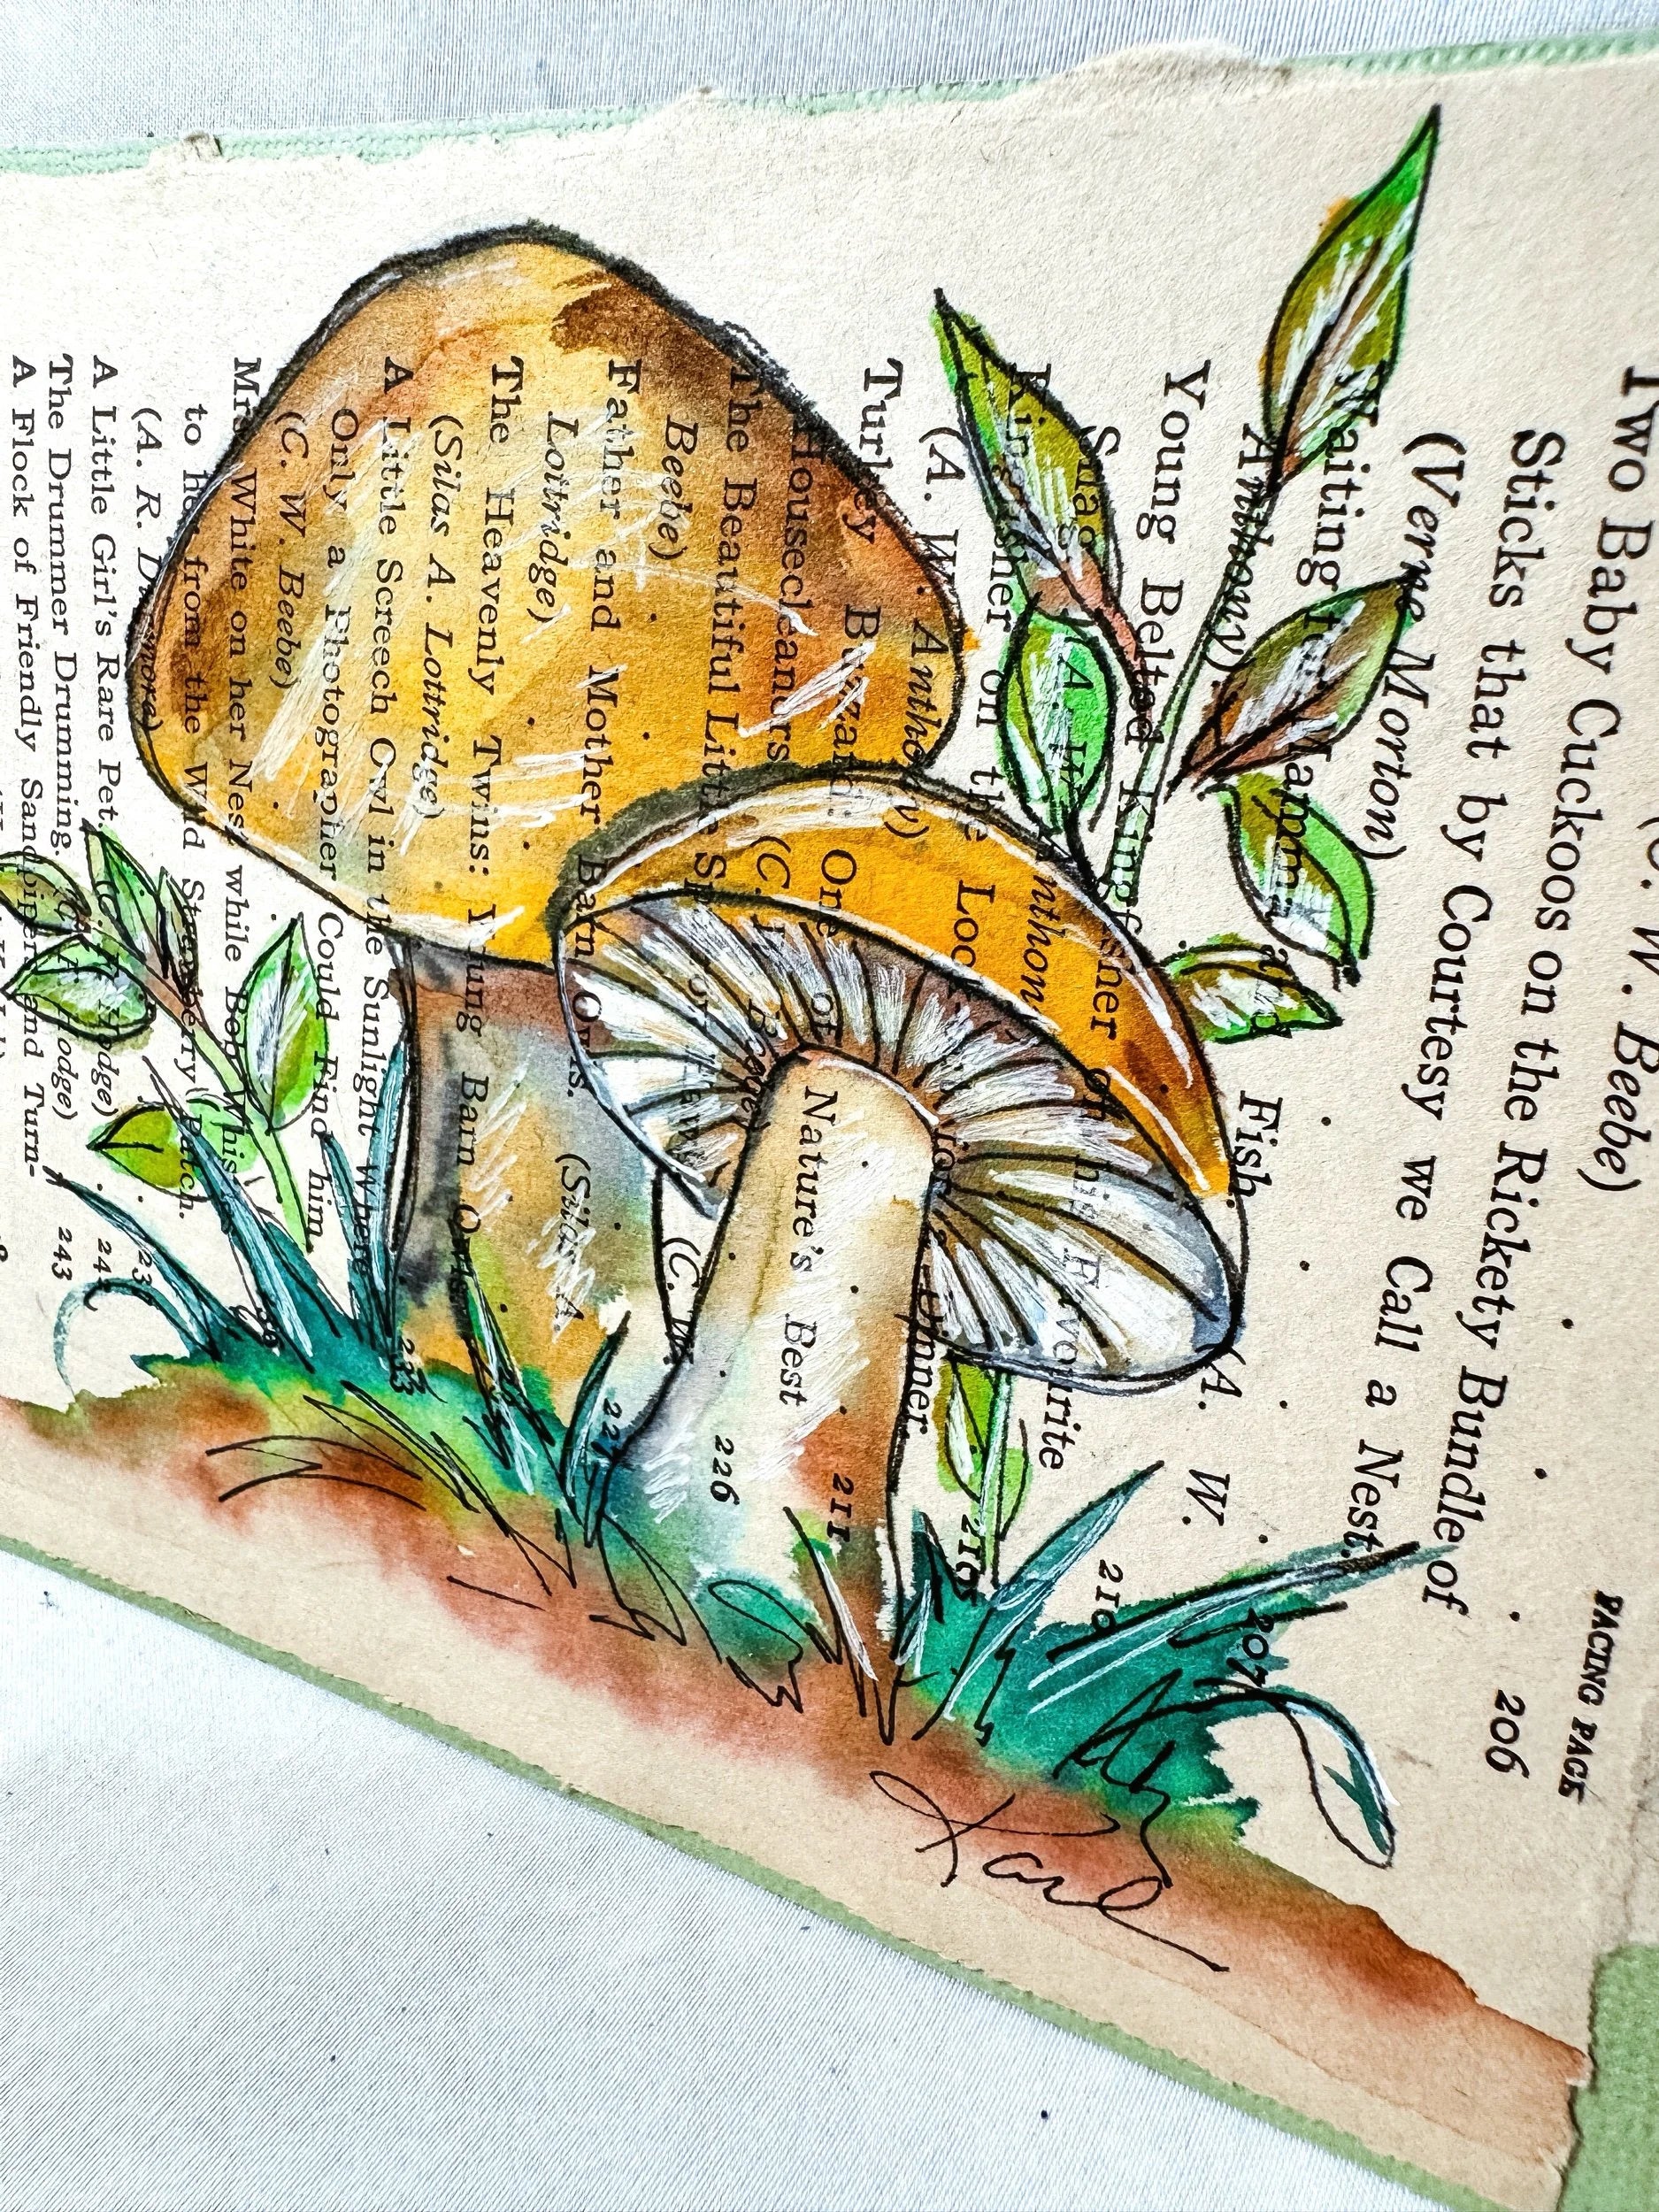 FACING PAGE
Two Baby Cuckoos on the Rickety Bundle of
Sticks that by Courtesy we Call a Nest.
(C. W. Beebe) . . . 206
(Verne Morton) . . . . 207
Waiting for Mamma and Fish. (A. W.
Anthony) 210
Young Belted Kingfisher on his Favourite
Snag. (A. W. Anthony)
Kingfisher on the Lookout for Dinner
(A. W. Anthony) . . 211
Turkey Buzzard: One of Nature's Best
Housecleaners. (C. . . 226
The Beautiful Little (C. W.
Beebe) . . 227
Father and Mother Barn Owls. (Silas A.
Lottridge)
The Heavenly Twins: Young Barn Owls
(Silas A. Lottridge)
A Little Screech Owl in the Sunlight Where
Only a Photographer Could Find him.
(C. W. Beebe)
Mrs. Bob White on her Nest while Bob Whistles
to her from the Wild Strawberry Patch.
(A. R. Dugmore)
A Little Girl's Rare Pet.
The Drummer Drumming. 243
A Flock of Friendly Sandpipers and Turn-
Karl